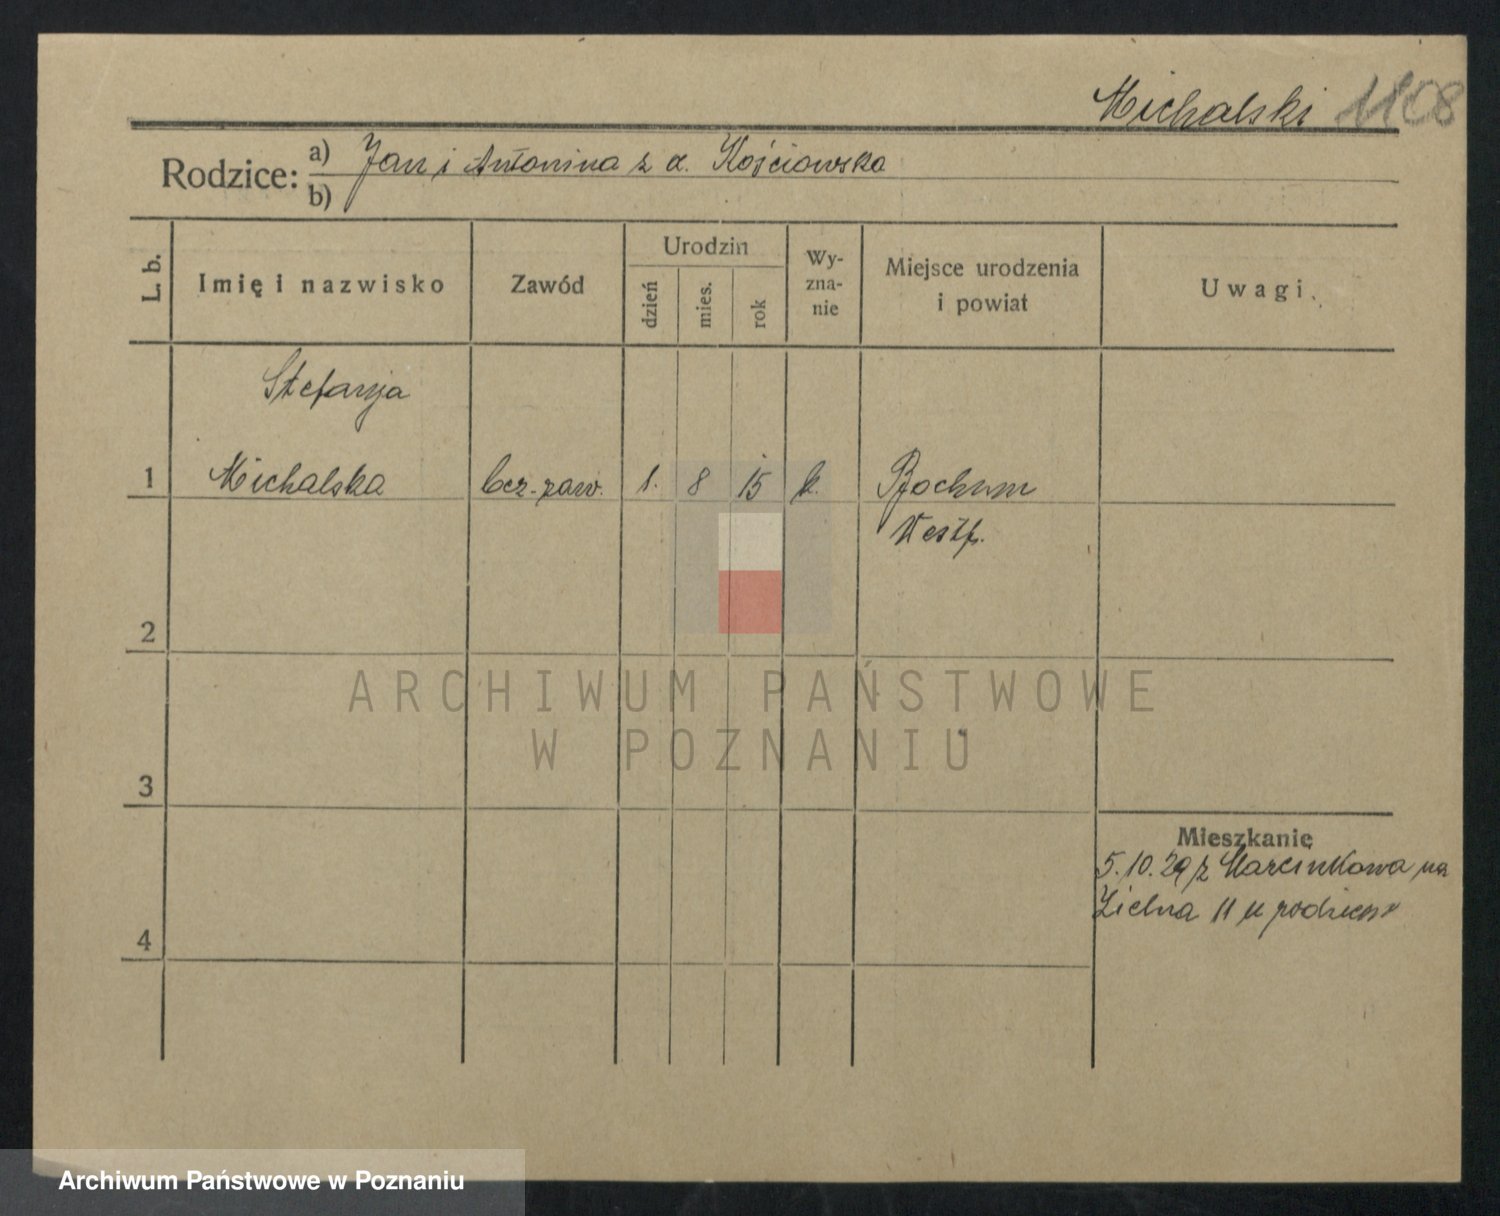 Michalski 1108
Rodzice: a) Jan i Antonina z d. Kościowska
b)
L. b.
Imię i nazwisko
Zawód
Urodzin
dzień
mies.
rok
Wy-
zna-
nie
Miejsce urodzenia
i powiat
Uwagi
Stefanja
1 Michalska bez-zaw. 1. 8 15 k. Bochum
Westf.
2
3
Mieszkanie
5.10.29 z Marcinkowa na
Zielna 11 u rodziców
4
ARCHIWUM PAŃSTWOWE
W POZNANIU
Archiwum Państwowe w Poznaniu